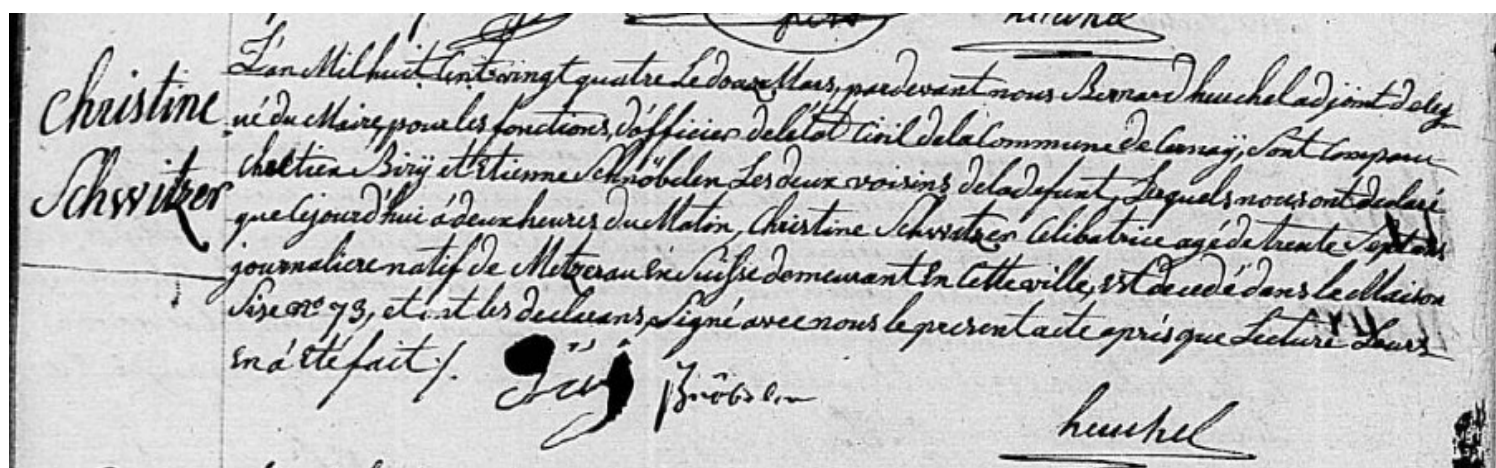 heuchel
Christine
Schwitzer
L'an Mil huit Cent vingt quatre Le douze Mars, pardevant nous Bernard heuchel adjoint deleg
ué du Maire, pour les fonctions, d'officier de l'état Civil de la Commune de Cernay, sont Comparu
Biry et Etienne Schnöbelen Les deux voisins de la defunt, Lesquels nous ont declaré
que Cejourd'hui á deux heures du Matin, Christine Schwitzer Celibatrice agé de trente Sept ans
journaliere natif de Metzerau En Suisse demeurant En Cette ville, Est decedé dans le Maison
Sise no. 73, et ont les declarans, Signé avec nous le present acte aprés que Lecture Leurs
En á Eté fait ./.
Biry Schnöbelen
heuchel